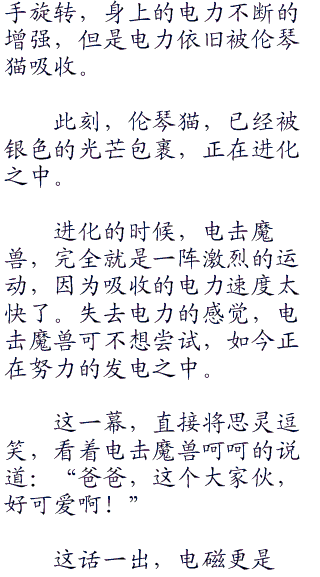 手旋转，身上的电力不断的
增强，但是电力依旧被伦琴
猫吸收。
此刻，伦琴猫，已经被
银色的光芒包裹，正在进化
之中。
进化的时候，电击魔
兽，完全就是一阵激烈的运
动，因为吸收的电力速度太
快了。失去电力的感觉，电
击魔兽可不想尝试，如今正
在努力的发电之中。
这一幕，直接将思灵逗
笑，看着电击魔兽呵呵的说
道：“爸爸，这个大家伙，
好可爱啊！”
这话一出，电磁更是